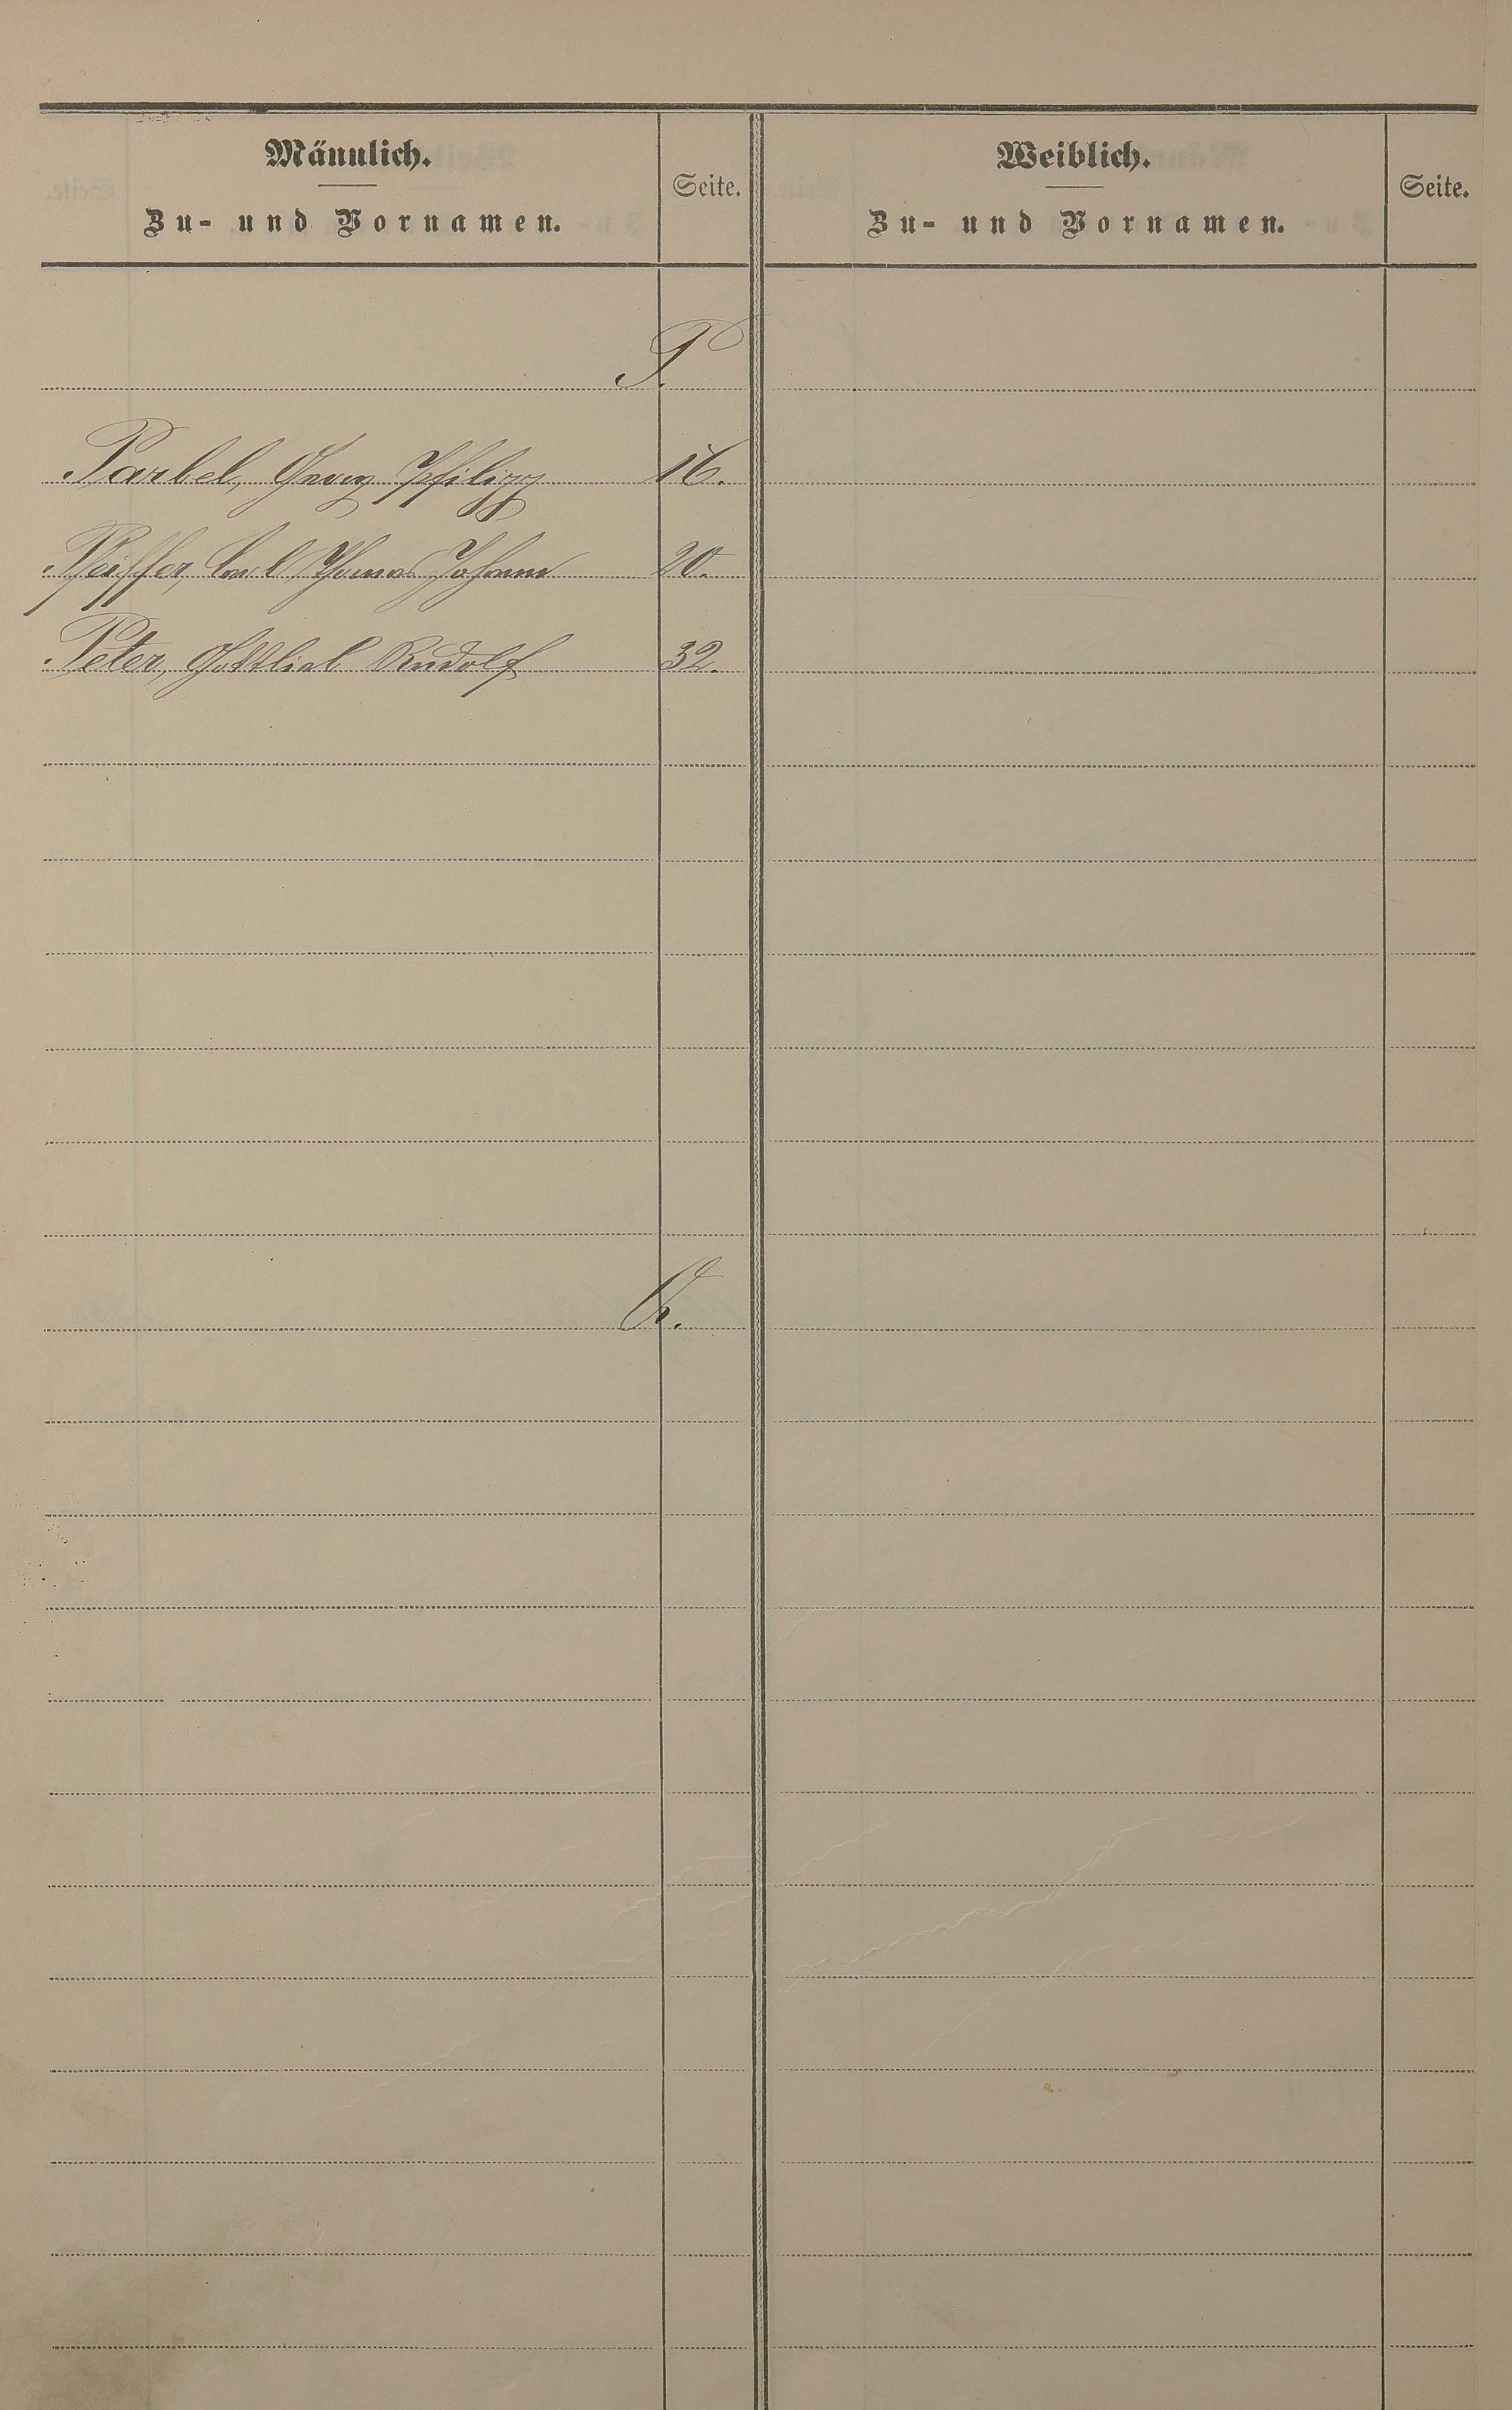 Männlich.
Zu- und Vornamen.
Seite.
Weiblich.
Zu- und Vornamen.
Seite.
P.
Parbel, Georg Philipp 16.
Pfeiffer, Carl Thomas Johann 20.
Peter, Gottlieb Rudolf 32.
Q.